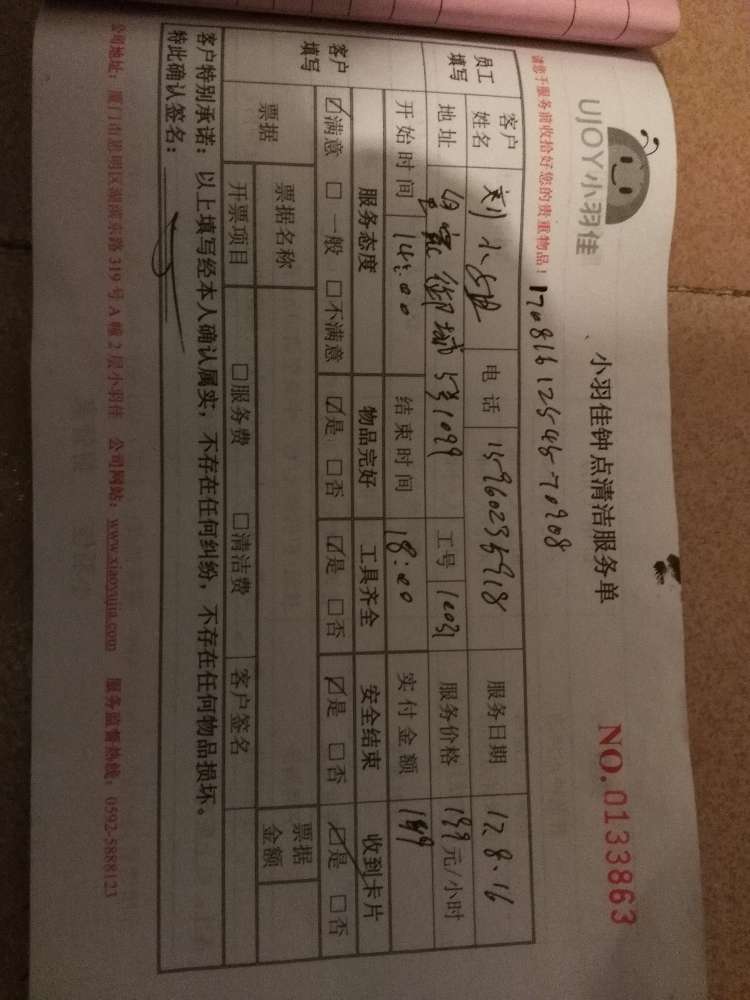 UJOY小羽佳
小羽佳钟点清洁服务单
NO.0133863
请您于服务前收拾好您的贵重物品！
员工填写 客户姓名 刘小姐 电话 服务日期 17.8.16
地址 5号1099 工号 服务价格 199元/小时
客户填写 开始时间 14:00 结束时间 18:00 实付金额 199
服务态度 物品完好 工具齐全 安全结束 收到卡片
☑满意 □一般 □不满意 ☑是 □否 ☑是 □否 ☑是 □否 ☑是 □否
票据 票据名称 票据金额
开票项目 □服务费 □清洁费 客户签名
客户特别承诺：以上填写经本人确认属实，不存在任何纠纷，不存在任何物品损坏。
特此确认签名：
公司地址：厦门市思明区湖滨东路319号A幢2层小羽佳 公司网站：www.xiaoyujia.com 服务监督热线：0592-5888123